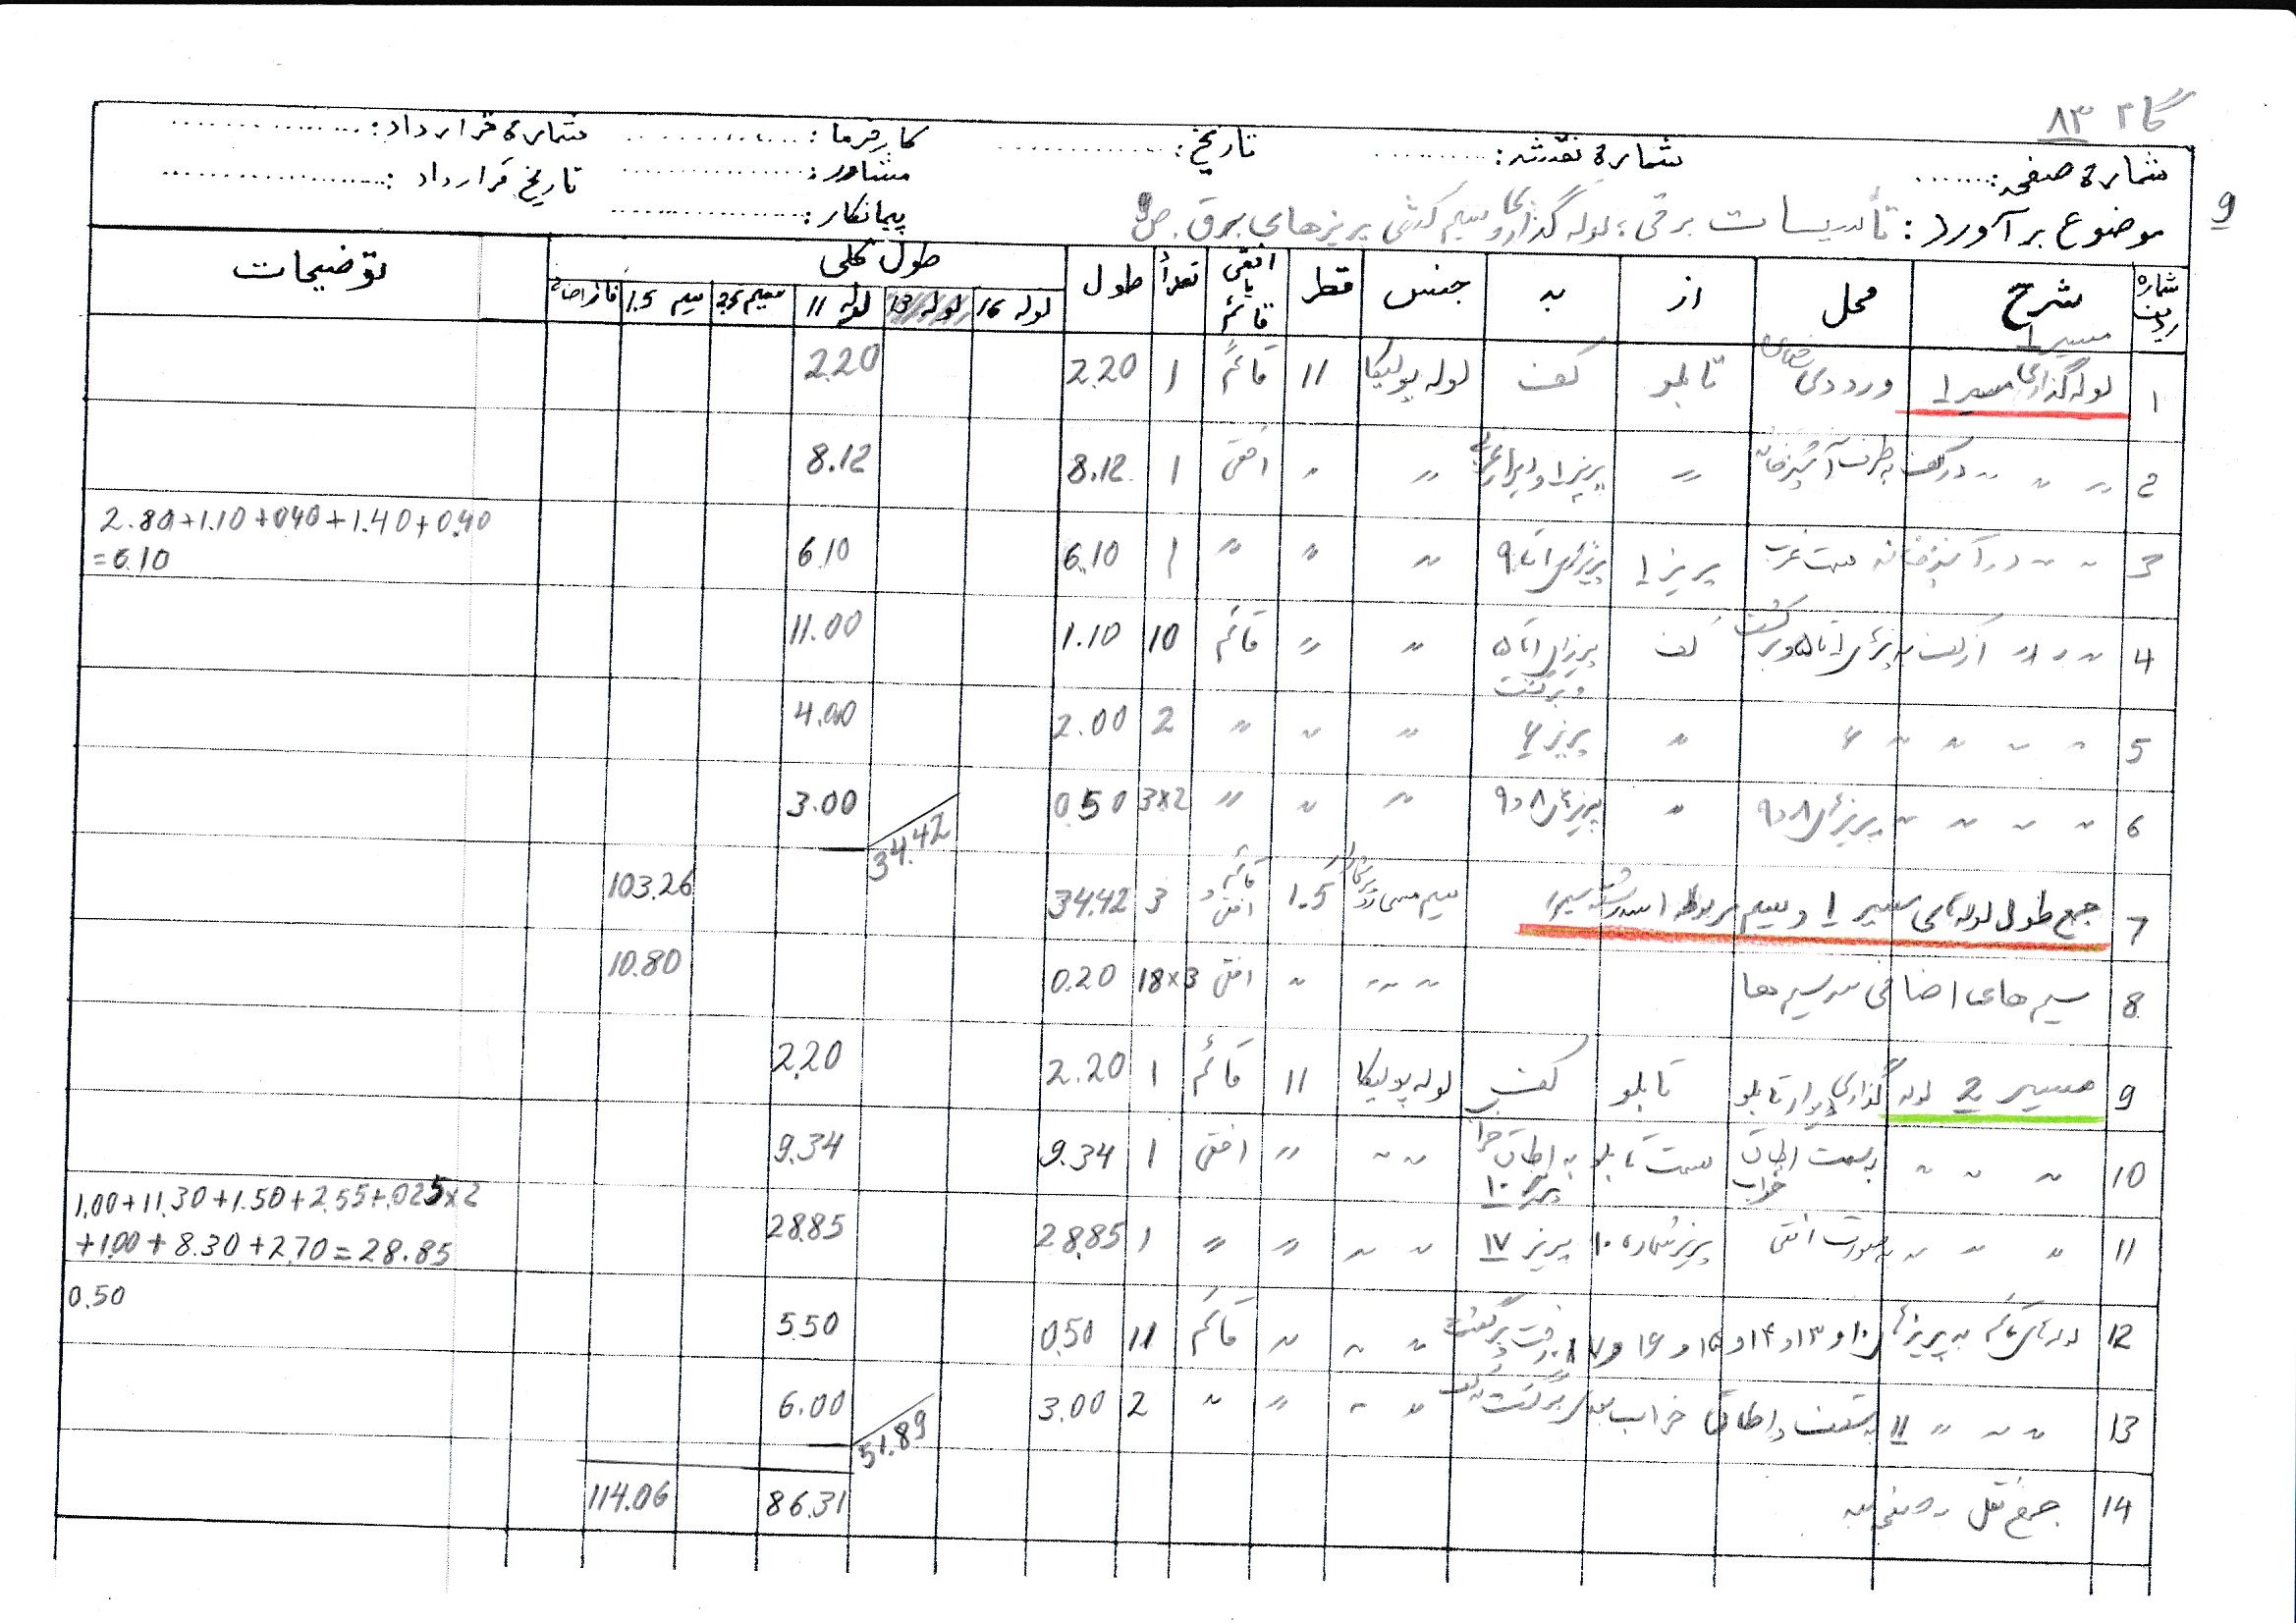 گا ۲ ۸۳
شمارهٔ صفحه: ....... شمارهٔ نقشه: ......... تاریخ: ............. کارفرما: ............ شمارهٔ قرارداد: ...............
مشاور: ............... تاریخ قرارداد: ..................
پیمانکار: ...............
9
موضوع برآورد: تأسیسات برقی؛ لوله گذاری و سیم کشی پریزهای برق
شماره ردیف شرح محل از به جنس قطر افقی یا قائم تعداد طول طول کلی توضیحات
لوله 16 لوله 13 لوله 11 سیم 2.5 سیم 1.5
مسیر 1
1 لوله گذاری مسیر 1 ورودی تابلو کف لوله پولیکا 11 قائم 1 2.20 2.20
2 〃 〃 〃 در کف به طرف آشپزخانه 〃 پریز 1 دیوار 〃 〃 افقی 1 8.12 8.12
3 〃 〃 در آشپزخانه سمت غرب پریز 1 پریزهای ۱ تا ۹ 〃 〃 〃 1 6.10 6.10 2.80+1.10+0.40+1.40+0.40
=6.10
4 〃 〃 〃 از کف به پریزهای ۱ تا ۵ و برگشت کف پریزهای ۱ تا ۵ و برگشت 〃 〃 قائم 10 1.10 11.00
5 〃 〃 〃 〃 ۶ 〃 پریز ۶ 〃 〃 〃 2 2.00 4.00
6 〃 〃 〃 〃 پریزهای ۸ و ۹ 〃 پریزهای ۸ و ۹ 〃 〃 〃 3×2 0.50 3.00
34.42
7 جمع طول لوله‌های مسیر 1 و سیم مربوطه سیم مسی 1.5 قائم و افقی 3 34.42 103.26
8 سیم های اضافی سر سیم ها 〃 〃 〃 〃 افقی 18×3 0.20 10.80
9 مسیر 2 لوله گذاری دیوار تابلو تابلو کف لوله پولیکا 11 قائم 1 2.20 2.20
10 〃 〃 〃 به سمت اطاق خواب سمت تابلو به اطاق خواب پریز ۱۰ 〃 〃 〃 افقی 1 9.34 9.34
11 〃 〃 〃 بصورت افقی پریز شماره ۱۰ پریز ۱۷ 〃 〃 〃 〃 1 28.85 28.85 1.00+11.30+1.50+2.55+.025×2
+1.00+8.30+2.70=28.85
12 لوله‌های قائم به پریزهای ۱۰ و ۱۳ و ۱۴ و ۱۵ و ۱۶ و ۱۷ رفت و برگشت 〃 〃 〃 قائم 11 0.50 5.50 0.50
13 〃 〃 〃 11 به سقف اطاق خواب برگشت 〃 〃 〃 〃 2 3.00 6.00
51.89
14 جمع نقل به صفحه بعد 86.31 114.06